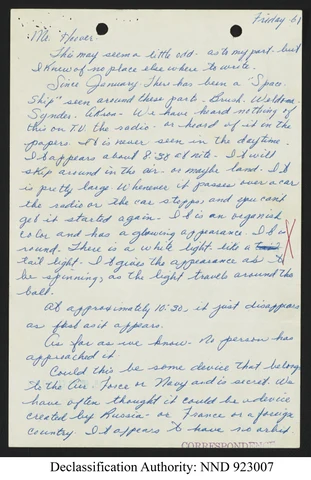 Friday 61
Mr. Hoover:
This may seem a little odd - as to my part - but
I knew of no place else where to write.
Since January. There has been a "Space
Ship" seen around these parts - Brush. Weldona
Synder. Akron - We have heard nothing of
this on T.V. the radio - or heard of it in the
papers. It is never seen in the daytime.
It appears about 8:30 at nite. It will
skip around in the air - or maybe land. It
is pretty large. Whenever it passes over a car
the radio or the car stopps, and you can't
get it started again - It is an organish
color and has a glowing appearance. It is
round. There is a white light like a
tail light. It gives the appearance as to
be spinning, as the light travels around the
ball.
At approximately 10:30, it just disappears
as fast as it appears.
As far as we know - No person has
approached it.
Could this be some device that belongs
to the Air Force or Navy and is secret. We
have often thought it could be a device
created by Russia - or France or a foreign
country. It appears to have no orbit
CORRESPONDENCE
Declassification Authority: NND 923007